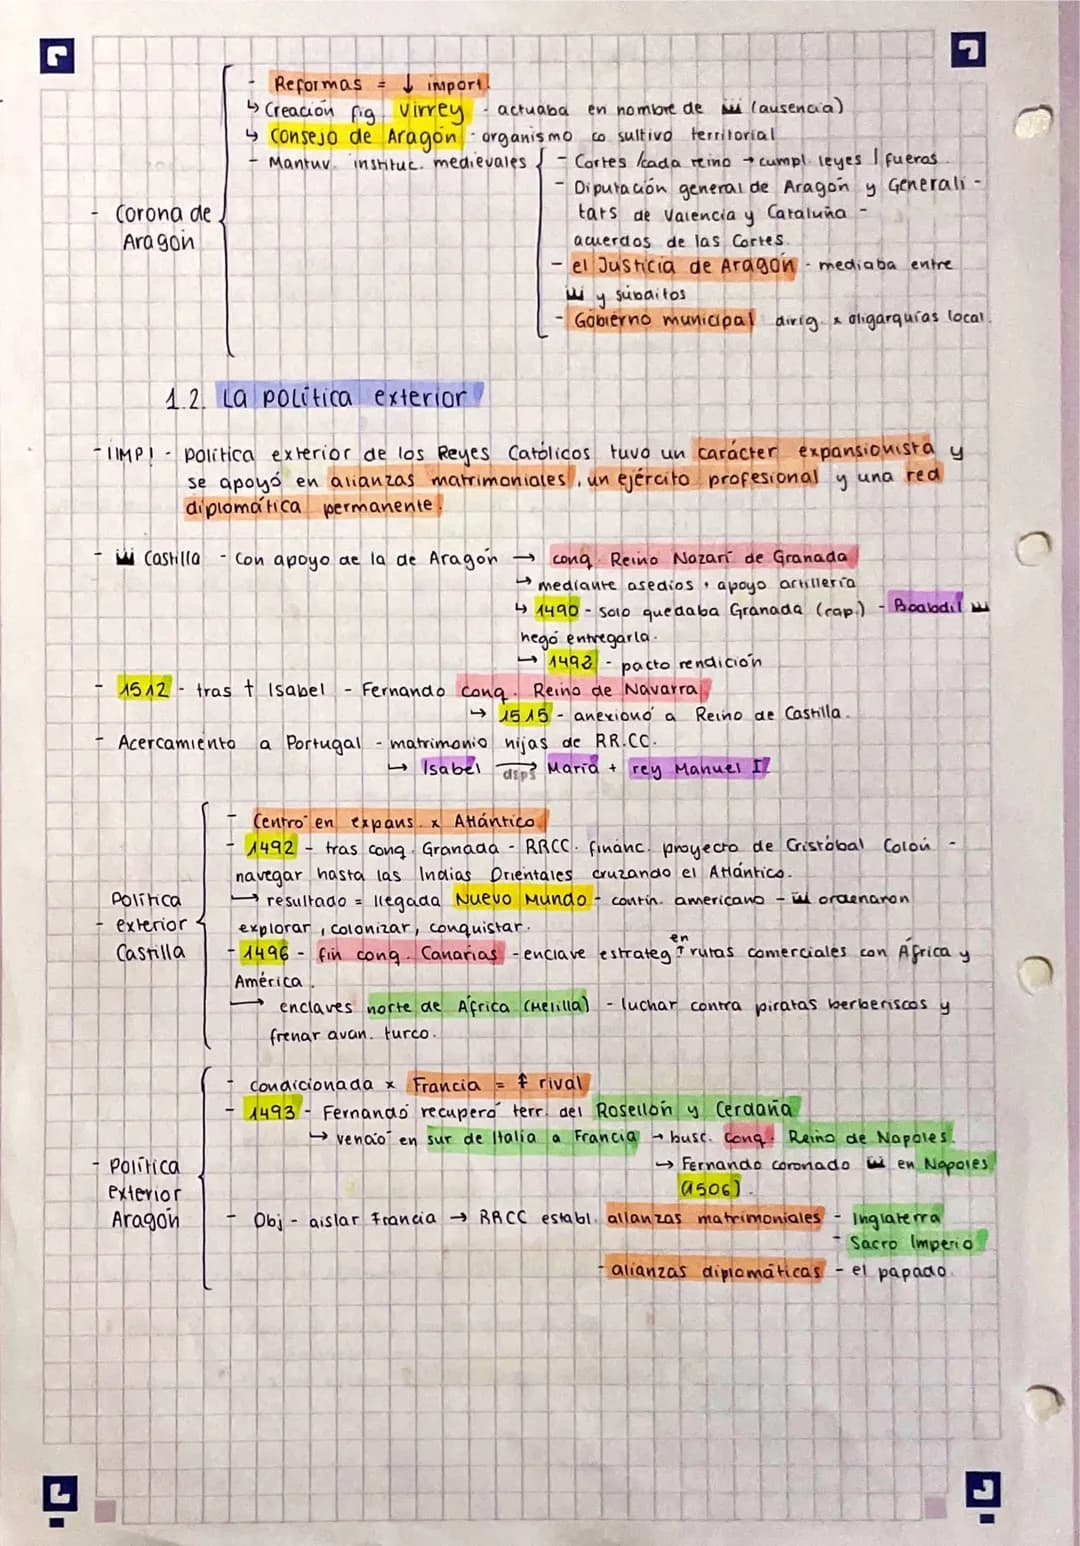 - Reformas = ↓ import.
↳ Creación fig. Virrey - actuaba en nombre de 👑 (ausencia)
↳ Consejo de Aragón - organismo co sultivo territorial
- Mantuv. instituc. medievales { - Cortes /cada reino → cumpl. leyes / fueros.
- Diputación general de Aragón y Generali-
tats de Valencia y Cataluña -
acuerdos de las Cortes.
- Corona de
Aragón
- el Justicia de Aragón - mediaba entre
👑 y súbditos
- Gobierno municipal dirig. x oligarquías local.
1.2. La política exterior
- ¡IMP! - política exterior de los Reyes Católicos tuvo un carácter expansionista y
se apoyó en alianzas matrimoniales, un ejército profesional y una red
diplomática permanente.
- 👑 Castilla - Con apoyo de la de Aragón → conq. Reino Nazarí de Granada
↳ mediante asedios + apoyo artillería
↳ 1490 - solo quedaba Granada (cap.) - Boabdil 👑
negó entregarla.
↳ 1492 - pacto rendición
- 1512 - tras † Isabel - Fernando conq. Reino de Navarra
↳ 1515 - anexionó a Reino de Castilla.
- Acercamiento a Portugal - matrimonio hijas de RR.CC.
↳ Isabel dsps → María + rey Manuel I
- Centró en expans. x Atlántico
- 1492 - tras conq. Granada - RRCC. financ. proyecto de Cristóbal Colón -
navegar hasta las Indias Orientales cruzando el Atlántico.
↳ resultado = llegada Nuevo Mundo - contin. americano - 👑 ordenaron
explorar, colonizar, conquistar.
- Política
exterior
Castilla
- 1496 - fin conq. Canarias - enclave estrateg en rutas comerciales con África y
América.
↳ enclaves norte de África (Melilla) - luchar contra piratas berberiscos y
frenar avan. turco.
- condicionada x Francia = ↑ rival
- 1493 - Fernando recuperó terr. del Rosellón y Cerdaña
↳ venció en sur de Italia a Francia → busc. conq. Reino de Nápoles.
↳ Fernando coronado 👑 en Nápoles
(1506).
- Política
exterior
Aragón
- Obj - aislar Francia → RRCC establ. alianzas matrimoniales - Inglaterra
- Sacro Imperio
- alianzas diplomáticas - el papado.